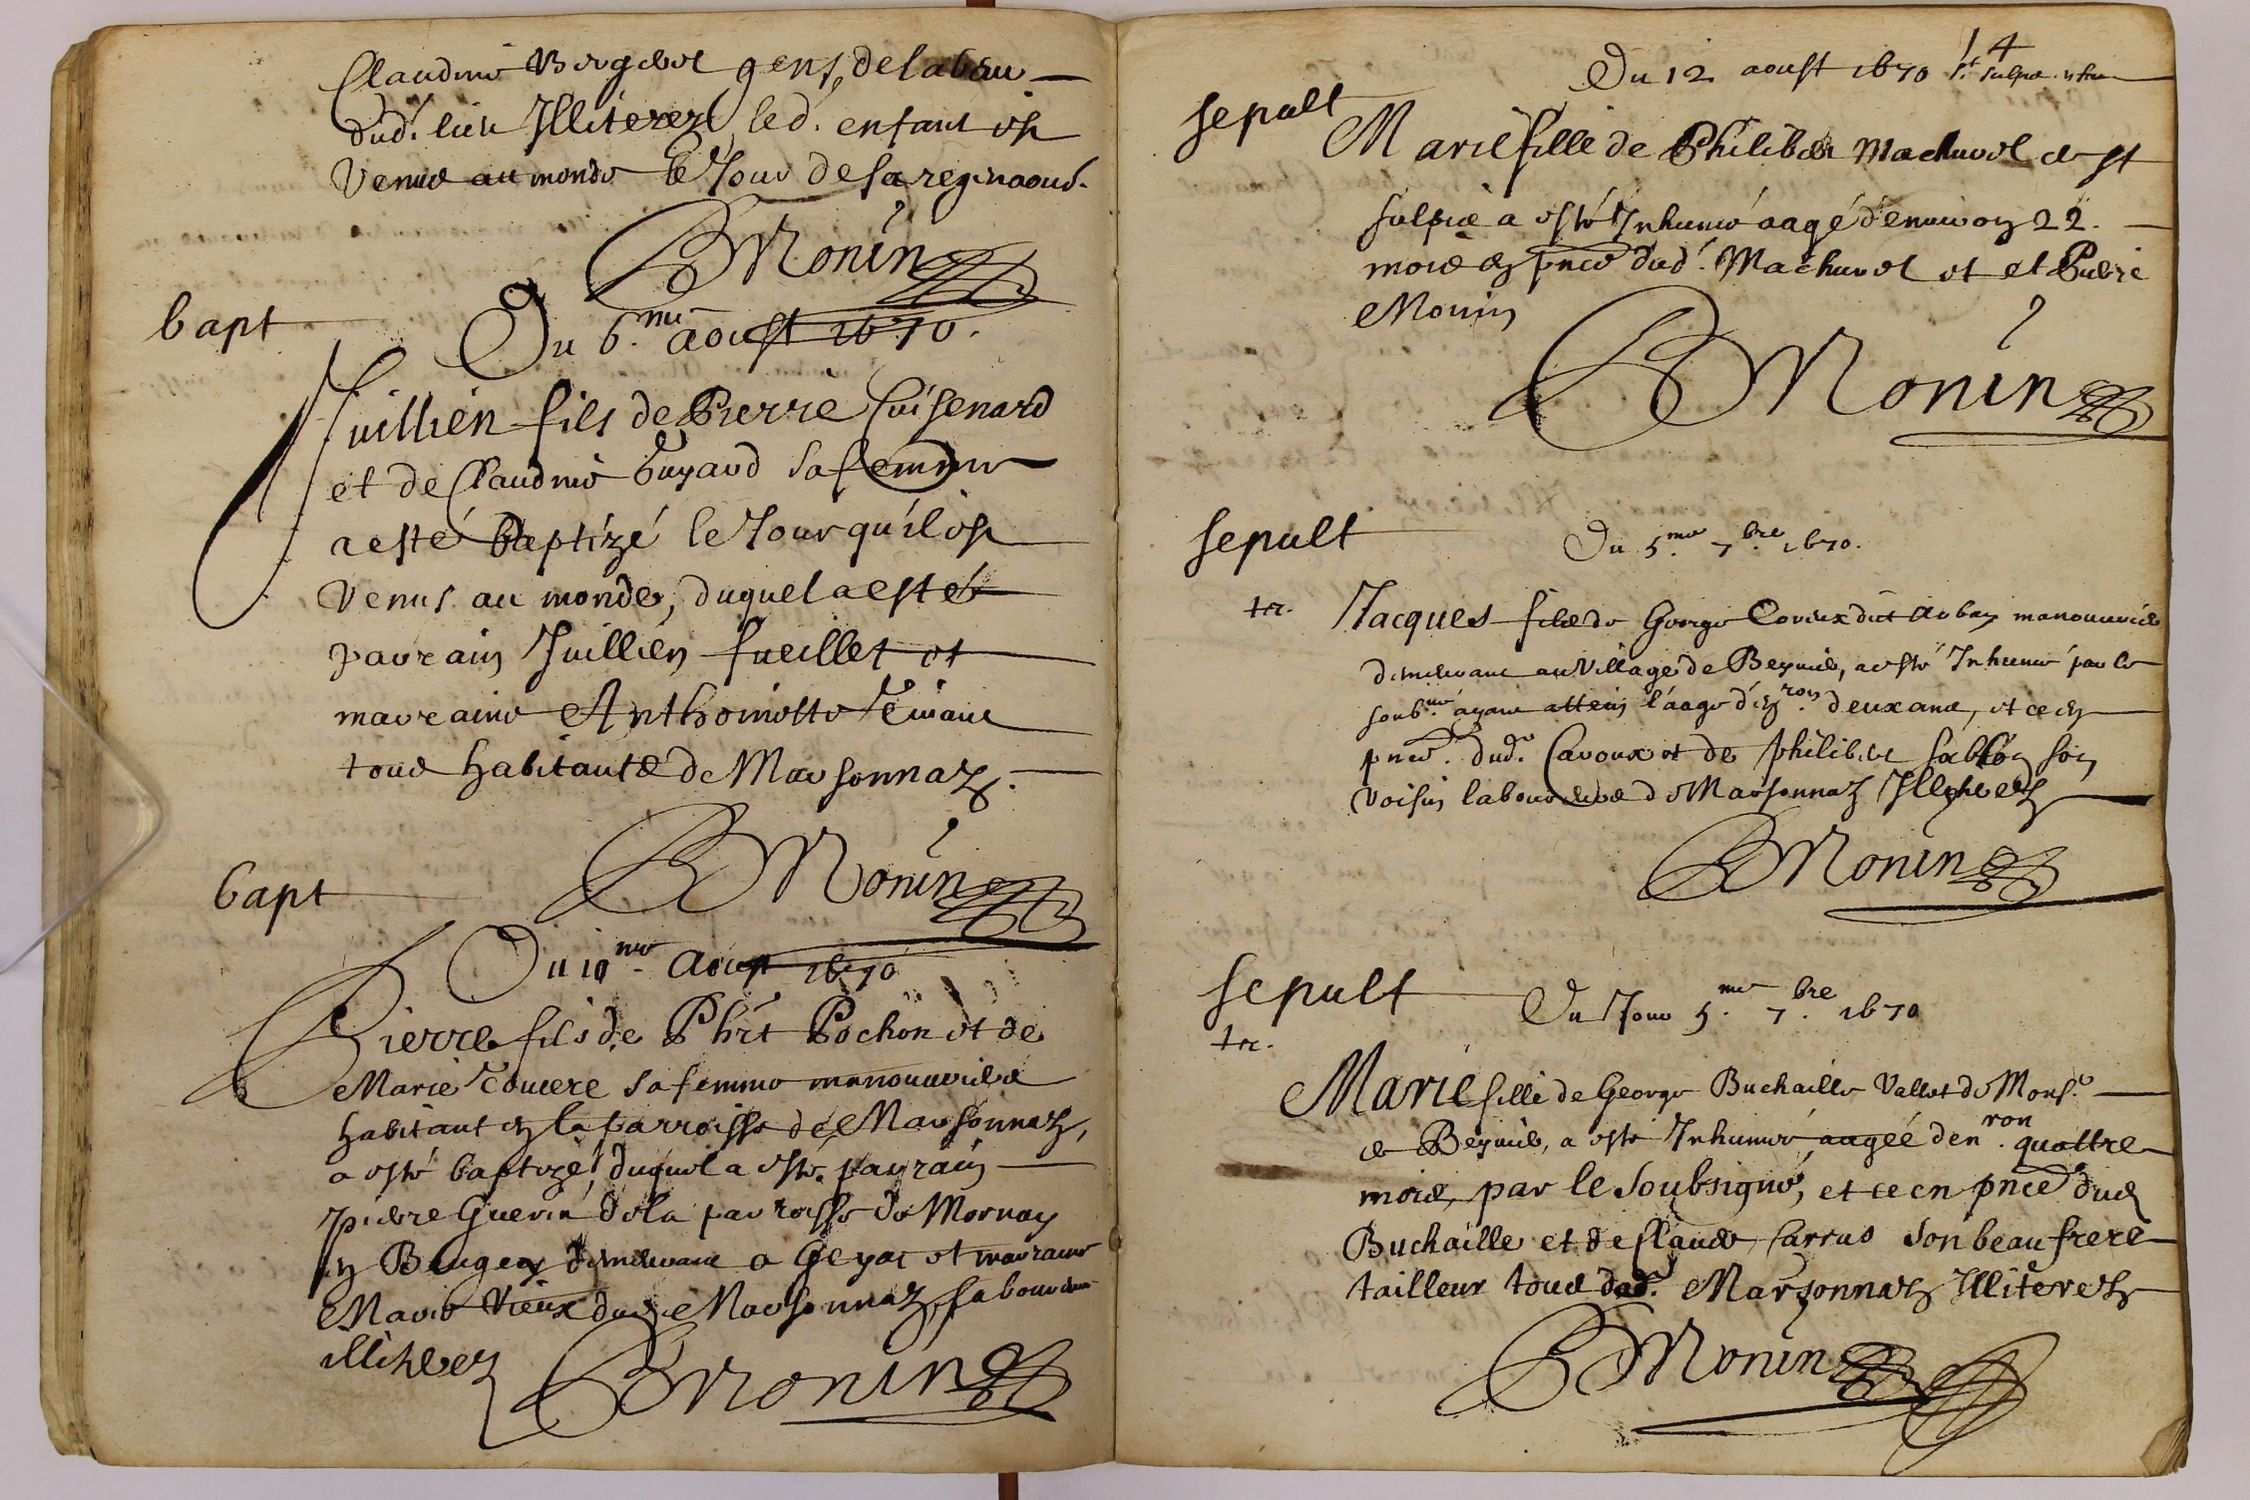 Claudine gens de labeur
dud. lieu Illiterez led. enfant est
venue au monde le Jour de sa
BMonin
bapt
Du 6.me aoust 1670.
Juillien fils de Pierre Cuisenard
et de Claudine Guyard sa femme
a esté baptizé le Jour qu'il est
venus au monde, duquel a esté
parrain Juillien fueillet et
marraine Anthoinette
tous habitants de Marsonnaz.
BMonin
bapt
Du 10me. Aoust 1670
Pierre fils de Phit Pochon et de
Marie sa femme manouuriers
habitant en la parroisse de Marsonnaz,
a esté baptizé, duquel a esté parrain
Pierre Guerin de la parroisse de Mornay
en Beugey demeurant a Geyat et marraine
Marie Vieux dud. Marsonnaz, laboureurs
illiterez
BMonin
14
Du 12 aoust 1670 St. Sulpice
sepult
Marie fille de Philibert Machurel de St
Sulpice a esté Inhumé aagé d'enuiron 22.
mois en pnce dud. Machurel et et Pierre
Monin
BMonin
sepult
Du 5.me 7.bre 1670.
Jacques fils de George dit manouurier
demeurant au Village de Beyuiers, a esté Inhumé par le
soub.né ayant attein l'aage d'en.ron deux ans, et ce en
pnce. dud. Cavoux et de philibert son
voisin laboureurs de Marsonnaz Illiterez
BMonin
sepult
Du Jour 5.me 7.bre 1670
Marie fille de George Buchaille Vallet de Monsr.
de Beyuiers, a esté Inhumé, aagée d'en.ron quattre
mois, par le soubsigné, et ce en pnce dud
Buchaille et de Claude Carrus son beau frere
tailleur tous dud. Marsonnaz Illiterez
BMonin